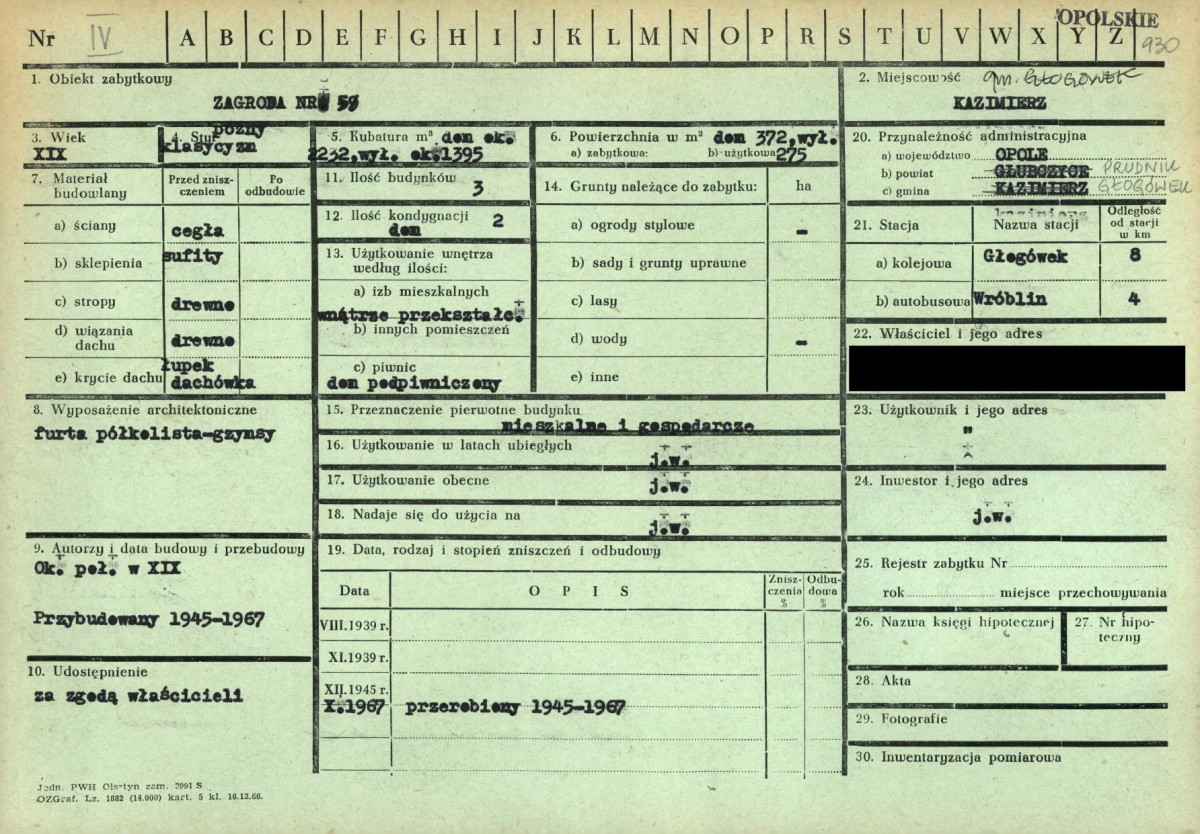 OPOLSKIE
Nr IV A B C D E F G H I J K L M N O P R S T U V W X Y Z 930
1. Obiekt zabytkowy
ZAGRODA NR 59
2. Miejscowość gm. GŁOGÓWEK
KAZIMIERZ
3. Wiek
XIX
4. Styl późny
klasycyzm
5. Kubatura m³ dom ok.
2232,wył. ok.1395
6. Powierzchnia w m² dom 372,wył.
a) zabytkowa: b) użytkowa 275
20. Przynależność administracyjna
a) województwo OPOLE
b) powiat GŁUBCZYCE PRUDNIK
c) gmina KAZIMIERZ GŁOGÓWEK
7. Materiał budowlany
Przed zniszczeniem
Po odbudowie
a) ściany cegła
b) sklepienia sufity
c) stropy drewno
d) wiązania dachu drewno
e) krycie dachu łupek
dachówka
11. Ilość budynków 3
12. Ilość kondygnacji 2
dom
13. Użytkowanie wnętrza
według ilości:
a) izb mieszkalnych
wnątrze przekształc.
b) innych pomieszczeń
c) piwnic
dom podpiwniczony
14. Grunty należące do zabytku: ha
a) ogrody stylowe -
b) sady i grunty uprawne
c) lasy
d) wody -
e) inne
kazimierz
21. Stacja Nazwa stacji Odległość
od stacji
w km
a) kolejowa Głogówek 8
b) autobusowa Wróblin 4
22. Właściciel i jego adres
8. Wyposażenie architektoniczne
furta półkolista-gzymsy
15. Przeznaczenie pierwotne budynku
mieszkalne i gospodarcze
16. Użytkowanie w latach ubiegłych
j.w.
17. Użytkowanie obecne
j.w.
18. Nadaje się do użycia na
j.w.
23. Użytkownik i jego adres
"
24. Inwestor i jego adres
j.w.
9. Autorzy i data budowy i przebudowy
Ok. poł. w XIX
Przybudowany 1945-1967
10. Udostępnienie
za zgodą właścicieli
19. Data, rodzaj i stopień zniszczeń i odbudowy
Data O P I S Zniszczenia % Odbudowa %
VIII.1939 r.
XI.1939 r.
XII.1945 r.
X.1967 przerobiony 1945-1967
25. Rejestr zabytku Nr
rok miejsce przechowywania
26. Nazwa księgi hipotecznej
27. Nr hipoteczny
28. Akta
29. Fotografie
30. Inwentaryzacja pomiarowa
Jedn. PWH Olsztyn zam. 2991 S
OZGraf. Lz. 1882 (14.000) kart. 5 kl. 16.12.66.